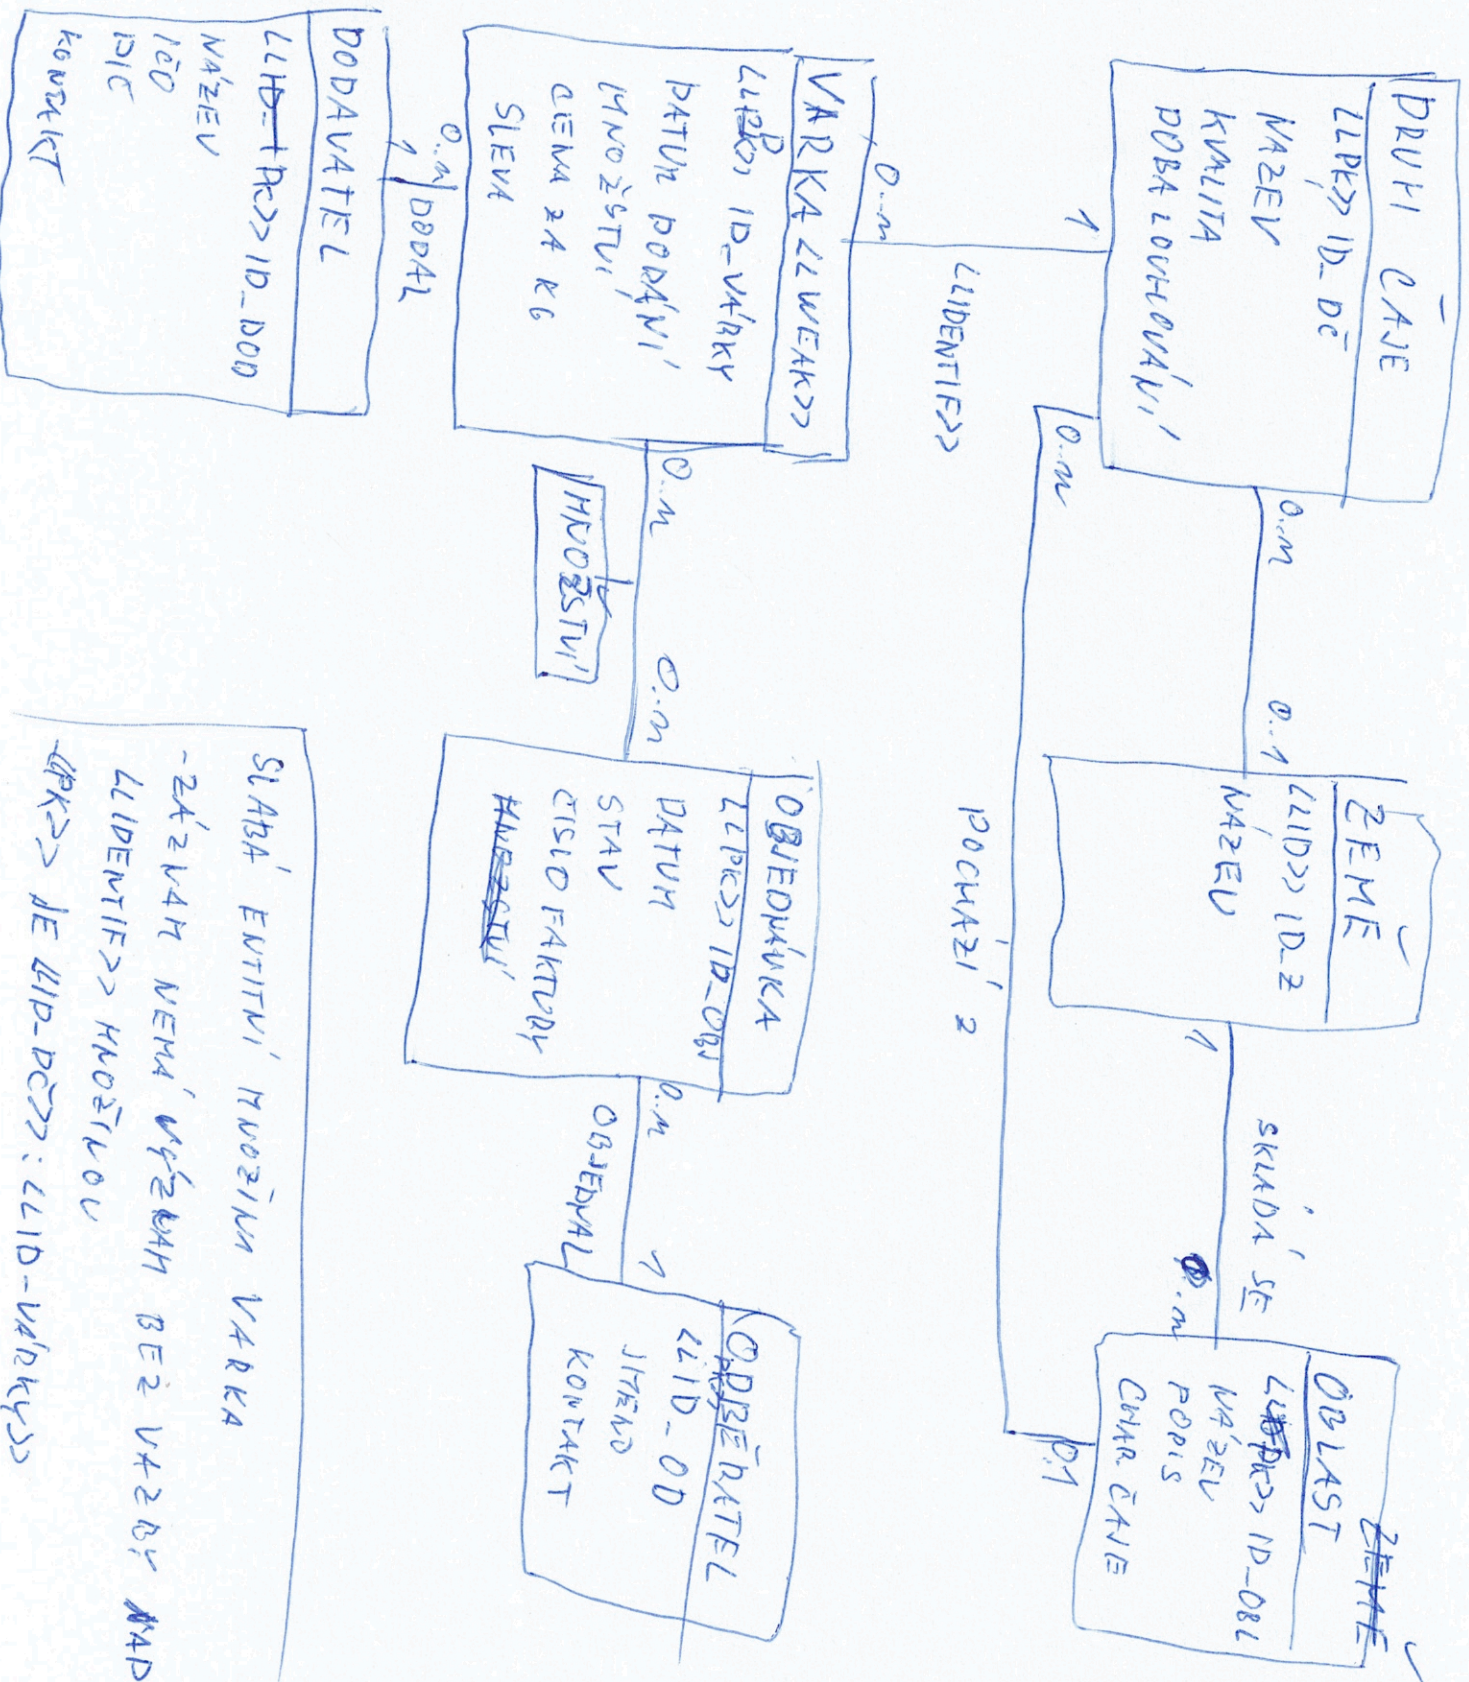 DRUH ČAJE
<<PK>> ID_DČ
NÁZEV
KVALITA
DOBA LOUHOVÁNÍ
0..n
0..1
ZEMĚ
<<ID>> ID_Z
NÁZEV
1
SKLÁDÁ SE
0..n
ZEMĚ
OBLAST
<<PK>> ID_OBL
NÁZEV
POPIS
CHAR ČAJE
0..n
POCHÁZÍ Z
0.1
1
<<IDENTIF>>
0..n
VARKA <<WEAK>>
ID_VÁRKY
DATUM DODÁNÍ
MNOŽSTVÍ
CENA ZA KG
SLEVA
0..n
MNOŽSTVÍ
0..n
OBJEDNÁVKA
<<PK>> ID_OBJ
DATUM
STAV
ČÍSLO FAKTURY
MNOŽSTVÍ
0..n
OBJEDNAL
1
ODBĚRATEL
<<ID_OD
JMÉNO
KONTAKT
0..n
DODAL
1
DODAVATEL
<<PK>> ID_DOD
NÁZEV
IČO
DIČ
KONTAKT
SLABÁ ENTITNÍ MNOŽINA VARKA
-ZÁZNAM NEMÁ VÝZNAM BEZ VAZBY NAD
<<IDENTIF>> MNOŽINOU
-<<PK>> JE <<ID_DČ>>:<<ID_VÁRKY>>